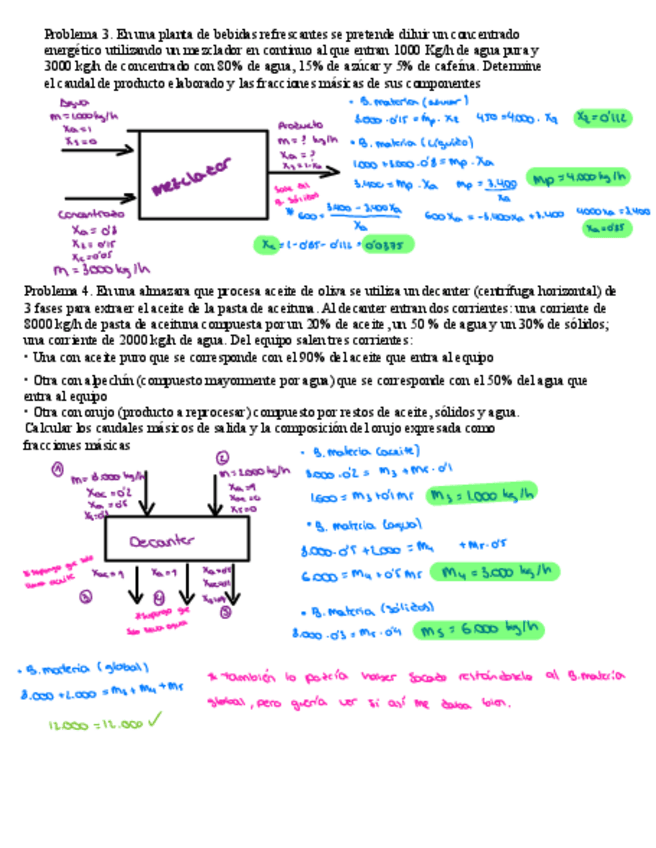 Problema 3. En una planta de bebidas refrescantes se pretende diluir un concentrado
energético utilizando un mezclador en continuo al que entran 1000 Kg/h de agua pura y
3000 kg/h de concentrado con 80% de agua, 15% de azúcar y 5% de cafeína. Determine
el caudal de producto elaborado y las fracciones másicas de sus componentes
Agua
m = 1.000 kg/h
Xa = 1
Xs = 0
mezclador
Producto
m = ? kg/h
Xa = ?
Concentrado
Xa = 0'8
Xz = 0'15
Xc = 0'05
m = 3000 kg/h
• B. materia (azúcar)
3.000 · 0'15 = mp · Xz 450 = 4.000 · Xz Xz = 0'112
• B. materia (líquido)
1.000 + 3.000 · 0'8 = mp · Xa
3.400 = mp · Xa mp = 3.400 / Xa mp = 4.000 kg/h
600 = 3.400 - 3.400Xa / Xa 600Xa = -3.400Xa + 3.400 4000Xa = 3.400
Xa = 0'85
Xc = 1 - 0'85 - 0'112 = 0'0375
Problema 4. En una almazara que procesa aceite de oliva se utiliza un decanter (centrífuga horizontal) de
3 fases para extraer el aceite de la pasta de aceituna. Al decanter entran dos corrientes: una corriente de
8000 kg/h de pasta de aceituna compuesta por un 20% de aceite, un 50 % de agua y un 30% de sólidos;
una corriente de 2000 kg/h de agua. Del equipo salen tres corrientes:
• Una con aceite puro que se corresponde con el 90% del aceite que entra al equipo
• Otra con alpechín (compuesto mayormente por agua) que se corresponde con el 50% del agua que
entra al equipo
• Otra con orujo (producto a reprocesar) compuesto por restos de aceite, sólidos y agua.
Calcular los caudales másicos de salida y la composición del orujo expresada como
fracciones másicas
1
m = 8.000 kg/h
Xac = 0'2
Xa = 0'5
2
m = 2.000 kg/h
Xa = 1
Xac = 0
Xs = 0
Decanter
Xac = 1 Xa = 1
3 4 5
• B. materia (aceite)
8.000 · 0'2 = m3 + m5 · 0'1
1.600 = m3 + 0'1 m5 m3 = 1.000 kg/h
• B. materia (agua)
8.000 · 0'5 + 2.000 = m4 + m5 · 0'5
6.000 = m4 + 0'5 m5 m4 = 3.000 kg/h
• B. materia (sólidos)
8.000 · 0'3 = m5 · 0'4 m5 = 6.000 kg/h
• B. materia (global)
8.000 + 2.000 = m3 + m4 + m5
12.000 = 12.000 ✓
* También lo podría haber sacado restándoselo al B. materia
global, pero quería ver si así me daba bien.